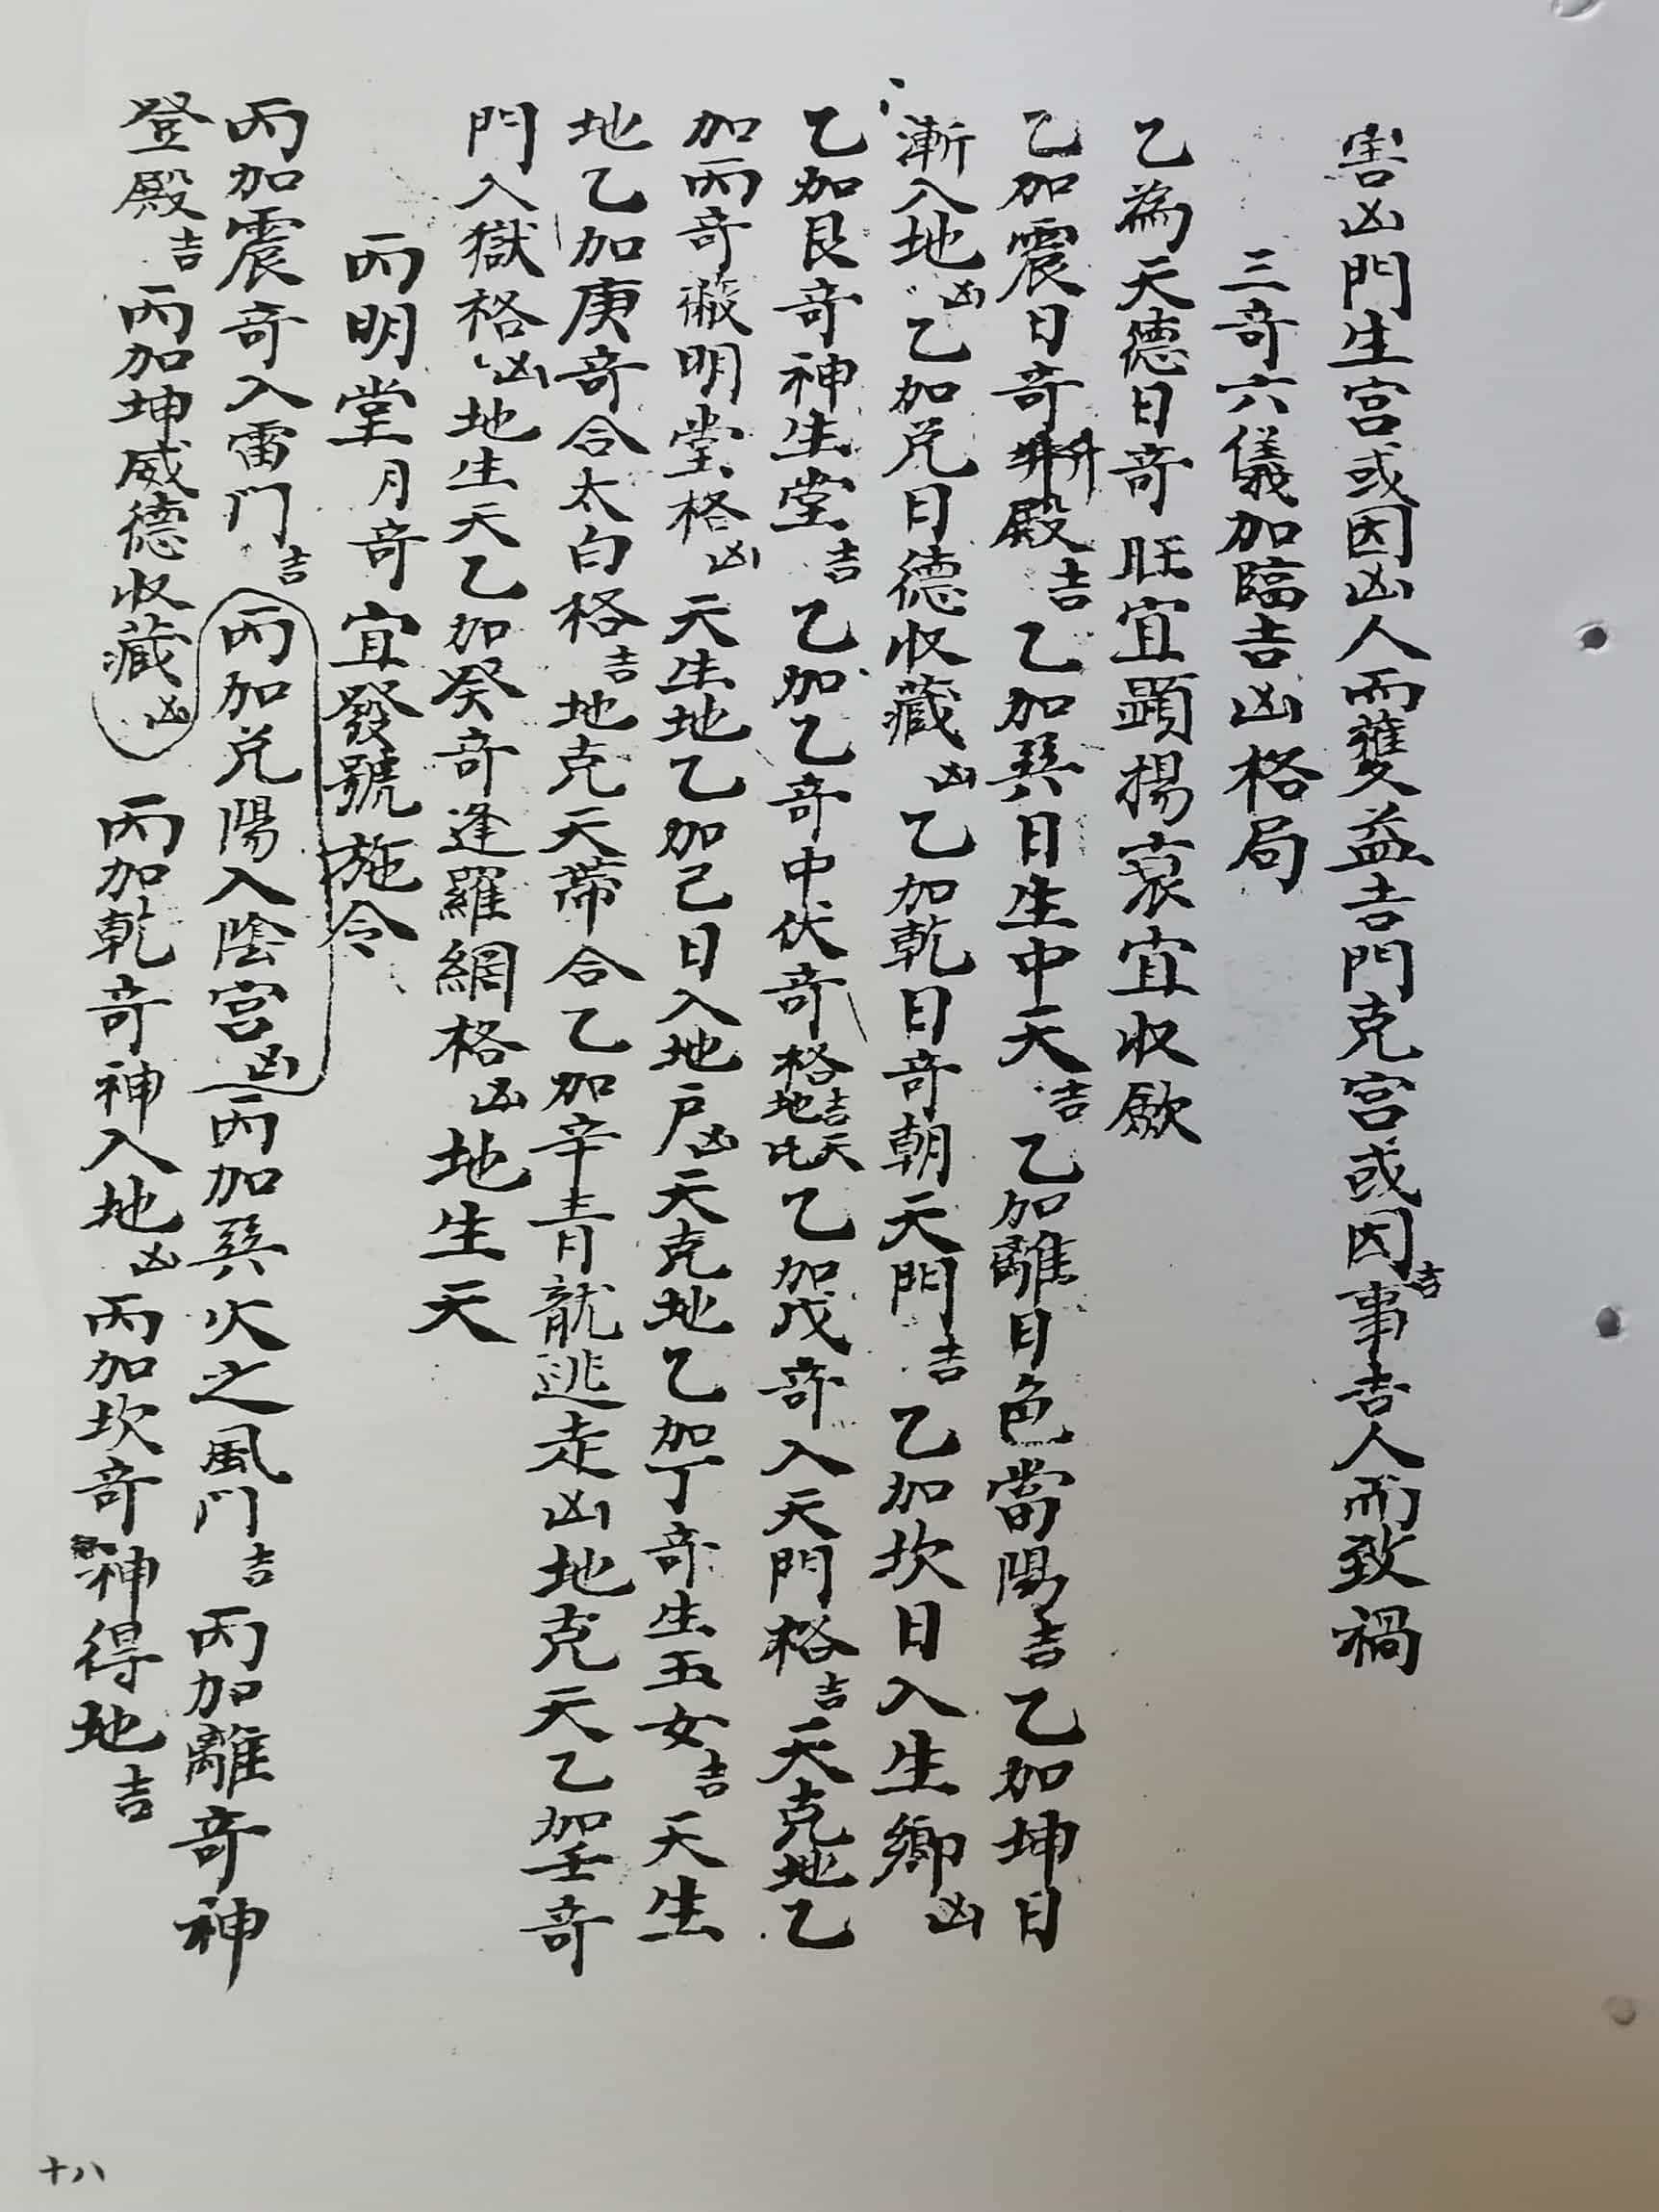 害凶門生宮或因凶人而獲益吉門克宮或因吉事吉人而致禍
三奇六儀加臨吉凶格局
乙為天德日奇旺宜顯揚衰宜收斂
乙加震日奇升殿吉乙加巽日生中天吉乙加離日色當陽吉乙加坤日
漸入地凶乙加兌日德收藏凶乙加乾日奇朝天門吉乙加坎日入生鄉凶
乙加艮奇神生堂吉乙加乙奇中伏奇格吉天地比乙加戊奇入天門格吉天克地乙
加丙奇蔽明堂格凶天生地乙加己日入地戶凶天克地乙加丁奇生玉女吉天生
地乙加庚奇合太白格吉地克天帶合乙加辛青龍逃走凶地克天乙加壬奇
門入獄格凶地生天乙加癸奇逢羅網格凶地生天
丙明堂月奇宜發號施令
丙加震奇入雷门吉丙加兌陽入陰宮凶丙加巽火之風门吉丙加離奇神
登殿吉丙加坤威德收藏凶丙加乾奇神入地凶丙加坎奇神得地吉
十八